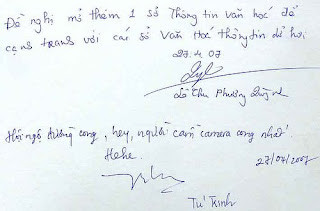 Đề nghị mở thêm 1 số Thông tin văn học để
cạnh tranh với các sở Văn Hoá thông tin dễ hơi
27.4.07
Lê Thu Phương Quỳnh
Hội ngộ đường cong, hey, người cầm camera cong nhất.
Hehe.
27/04/2007
Tú Trinh